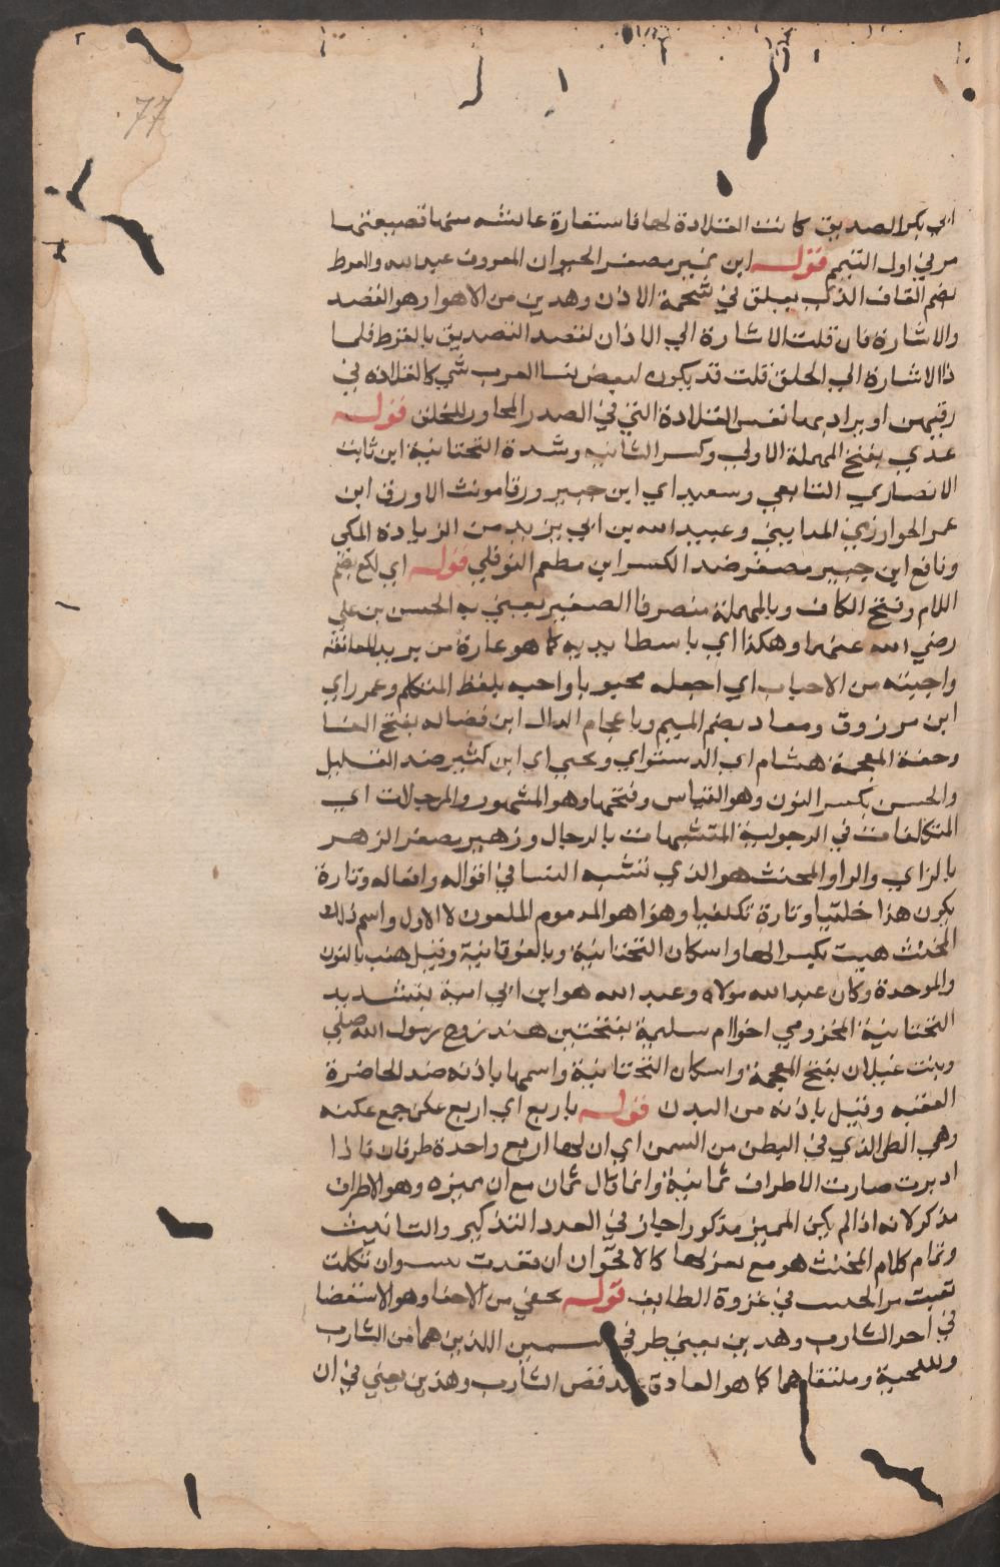 77
ابي بكر الصديق كانت القلادة لها فاستعارة عائشه منها قصيعتها
مر في اول التيمم قوله ابن نمير مصغر الحيوان المعروف عبد الله والقرط
بضم القاف الذي يعلق في شحمة الاذن وهدين من الاهوا وهو القصد
والاشارة فان قلت الاشارة الي الاذان لقصد التصديق بالقرط فلما
ذا الاشارة الي الحلق قلت قد يكون لبعض نسا العرب شي كالقلادة في
رقبهن او يراد بها نفس القلادة التي في الصدر المجاور للحلق قوله
عدي بفتح المهملة الاولي وكسر الثانيه وشدة التحتانية ابن ثابت
الانصاري التابعي وسعيد اي ابن جبير ورقا مونث الاورق ابن
عمر الخوارزمي المدايني وعبيد الله بن ابي يزيد من الزيادة المكي
ونافع ابن جبير مصغر ضد الكسر ابن مطعم النوفلي قوله اي لكع بضم
اللام وفتح الكاف وبالمهملة منصرفا الصغير يعني به الحسن بن علي
رضي الله عنهما وهكذا اي باسطا يديه كما هو عارة من يريد المعانقه
واحبته من الاحباب اي اجعله محبوبا واحبه بلفظ المتكلم وعمر راي
ابن مرزوق ومعاد بضم الميم وباعجام الدال ابن فضاله بفتح الفا
وخفة المعجمة هشام اي الدستواي ويحيي اي ابن كثير ضد القليل
والحسن بكسر النون وهو القياس وفتحها وهو المشهور والمرجلات اي
المتكلفات في الرجولية المتشبهات بالرجال وزهير مصغر الزهر
بالزاي والراو المخنث هو الذي تشبه النسا في اقواله وافعاله وتارة
يكون هذا خلقيا وتارة تكلفيا وهذا هو المدموم الملعون لا الاول واسم ذلك
المخنث هيت بكسر الها واسكان التحتانية وبالفوقانية وقيل هنب بالنون
والموحدة وكان عبد الله مولاه وعبد الله هو ابن ابي امية بتشديد
التحتانية المخزومي اخو ام سليمة بفتحتين هند زوج رسول الله صلي
وبنت غيلان بفتح المعجمة واسكان التحتانية واسمها باذنه ضد الحاضرة
العقبه وقيل باذنه من البدن قوله باربع اي اربع عكن جمع عكنه
وهي الطي الذي في البطن من السمن اي ان لها اربع واحدة طرفان فاذا
ادبرت صارت الاطراف ثمانية وانما قال ثمان مع ان مميزه وهو الاطراف
مذكر لانه اذا لم يكن المميز مذكورا جاز في العدد التذكير والتانيث
وتمام كلام المخنث هو مع ثغر لها كالاقحوان ان تعدت وان تكلمت
تغنت مر الحديث في غزوة الطايف قوله يحفي من الاحفا وهو الاستقصا
في احد الشارب وهدين يعني طرفي اللذين هما من الشارب
واللحية وملتقاهما كما هو العادة عند قص الشارب وهذين يعني في ان